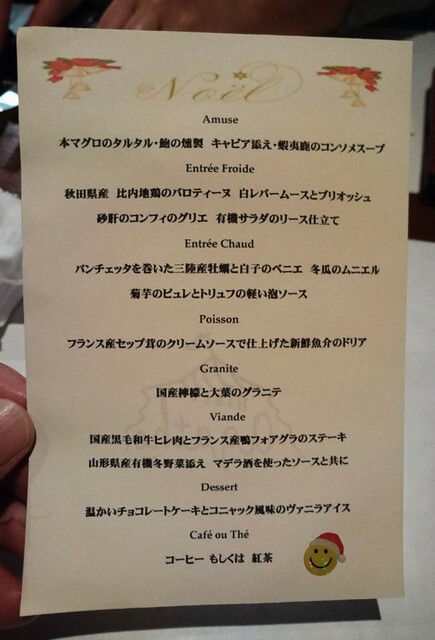 Noël
Amuse
本マグロのタルタル・鮑の燻製 キャビア添え・蝦夷鹿のコンソメスープ
Entrée Froide
秋田県産 比内地鶏のバロティーヌ 白レバームースとブリオッシュ
砂肝のコンフィのグリエ 有機サラダのリース仕立て
Entrée Chaud
パンチェッタを巻いた三陸産牡蠣と白子のベニエ 冬瓜のムニエル
菊芋のピュレとトリュフの軽い泡ソース
Poisson
フランス産セップ茸のクリームソースで仕上げた新鮮魚介のドリア
Granite
国産檸檬と大葉のグラニテ
Viande
国産黒毛和牛ヒレ肉とフランス産鴨フォアグラのステーキ
山形県産有機冬野菜添え マデラ酒を使ったソースと共に
Dessert
温かいチョコレートケーキとコニャック風味のヴァニラアイス
Café ou Thé
コーヒー もしくは 紅茶